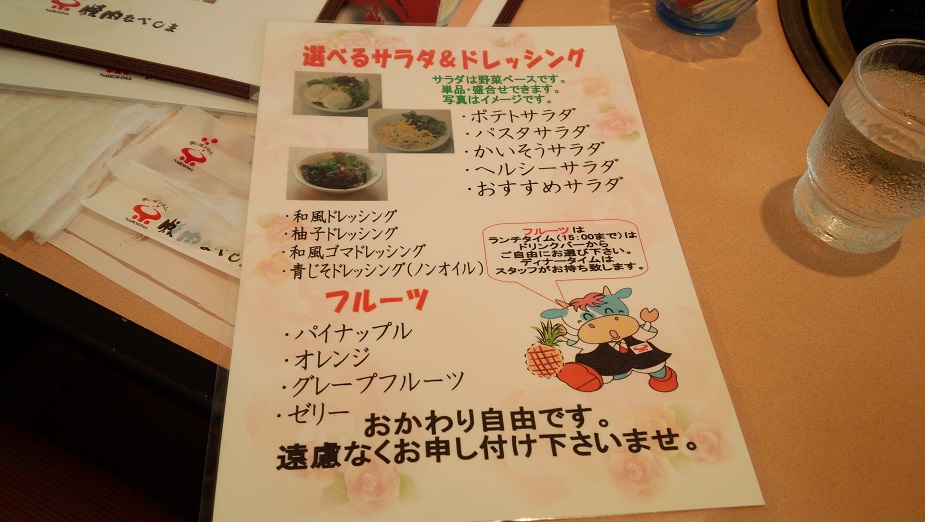 焼肉なべしま
NABESHIMA
選べるサラダ&ドレッシング
サラダは野菜ベースです。
単品・盛合せできます。
写真はイメージです。
・ポテトサラダ
・パスタサラダ
・かいそうサラダ
・ヘルシーサラダ
・おすすめサラダ
・和風ドレッシング
・柚子ドレッシング
・和風ゴマドレッシング
・青じそドレッシング(ノンオイル)
フルーツは
ランチタイム(15:00まで)は
ドリンクバーから
ご自由にお選び下さい。
ディナータイムは
スタッフがお持ち致します。
フルーツ
・パイナップル
・オレンジ
・グレープフルーツ
・ゼリー
おかわり自由です。
遠慮なくお申し付け下さいませ。
NABESHIMA
焼肉なべしま